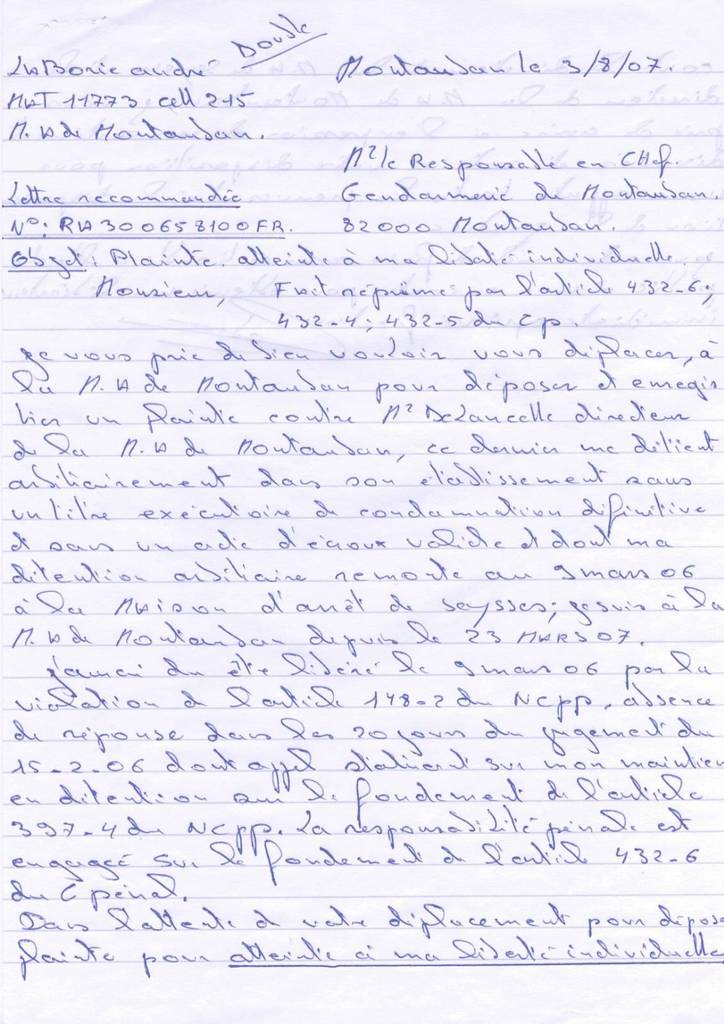 Double
LABorie andré Montauban le 3/8/07.
MAT 11773 cell 215
M. A de Montauban.
Mr le Responsable en CHef.
Lettre recommandée Gendarmerie de Montauban.
N°: RA 30 065 8100 FR. 82000 Montauban.
Objet: Plainte. atteinte à ma liberté individuelle.
Monsieur, FAit réprimé par l'article 432-6;
432-4; 432-5 du Cp.
Je vous prie de bien vouloir vous déplacer, à
la M.A de Montauban pour déposer et enregis
trer un plainte contre Mr Delancelle directeur
de la M.A de Montauban, ce dernier me détient
arbitrairement dans son établissement sans
un titre exécutoire de condamnation définitive
et sans un acte d'écroux valide et dont ma
détention arbitraire remonte au 9 mars 06
à la MAison d'arrêt de Seysses; je suis à la
M.A de Montauban depuis le 23 MARS 07.
J'aurai du être libéré le 9 mars 06 par la
violation de l'article 148-2 du NCPP, absence
de réponse dans les 20 jours du jugement du
15-2-06 dont appel statuant sur mon maintien
en détention sur le fondement de l'article
397-4 du NCPP. La responsabilité pénale est
engagé sur le fondement de l'article 432-6
du C pénal.
Dans l'attente de votre déplacement pour dépose
plainte pour atteinte à ma liberté individuelle